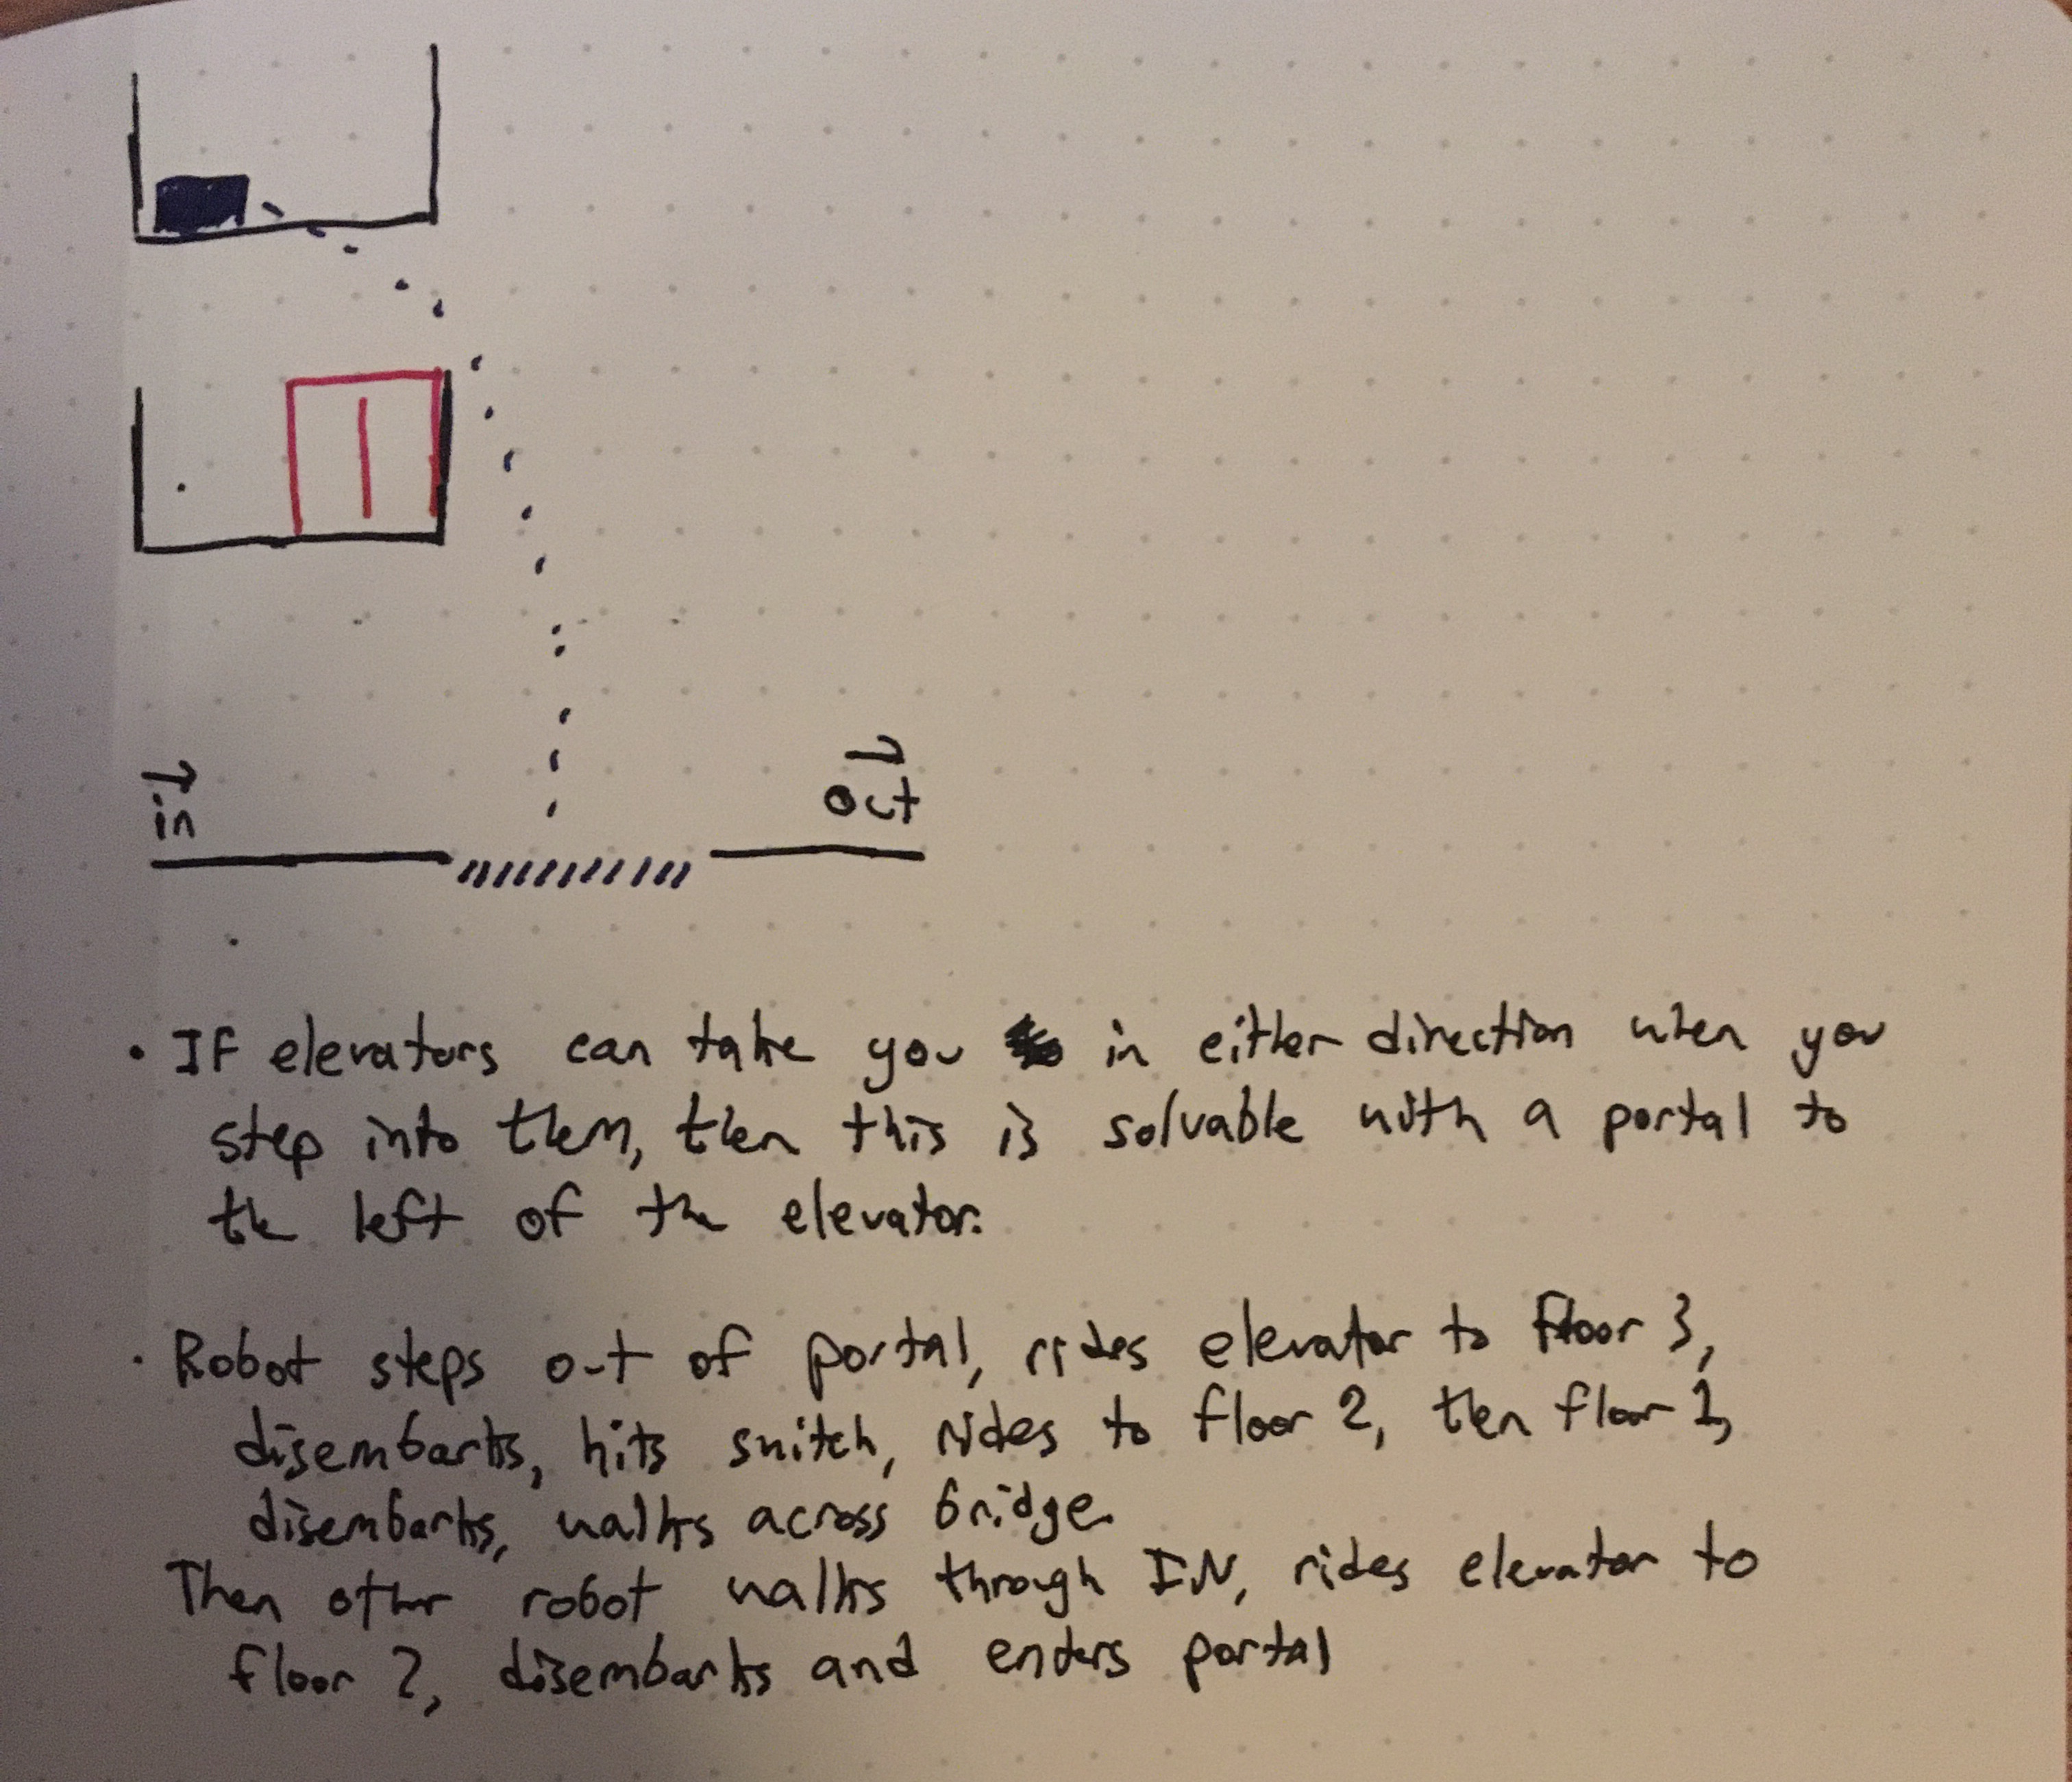 in
out
• If elevators can take you in either direction when you
step into them, then this is solvable with a portal to
the left of the elevator.
• Robot steps out of portal, rides elevator to floor 3,
disembarks, hits switch, rides to floor 2, then floor 1,
disembarks, walks across bridge.
Then other robot walks through IN, rides elevator to
floor 2, disembarks and enters portal